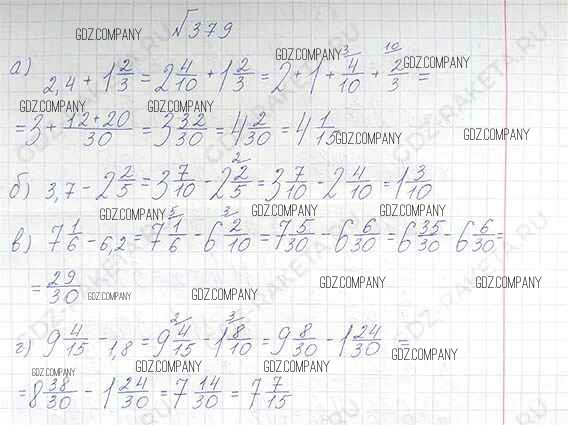 №379
GDZ.COMPANY
а) 2,4 + 1 2/3 = 2 4/10 + 1 2/3 = 2 + 1 + 4/10 + 2/3 =
GDZ.COMPANY GDZ.COMPANY GDZ.COMPANY GDZ.COMPANY
= 3 + (12+20)/30 = 3 32/30 = 4 2/30 = 4 1/15
GDZ.COMPANY GDZ.COMPANY
б) 3,7 - 2 2/5 = 3 7/10 - 2 2/5 = 3 7/10 - 2 4/10 = 1 3/10
GDZ.COMPANY GDZ.COMPANY GDZ.COMPANY
в) 7 1/6 - 6,2 = 7 1/6 - 6 2/10 = 7 5/30 - 6 6/30 = 6 35/30 - 6 6/30 =
= 29/30
GDZ.COMPANY GDZ.COMPANY GDZ.COMPANY GDZ.COMPANY
г) 9 4/15 - 1,8 = 9 4/15 - 1 8/10 = 9 8/30 - 1 24/30 =
GDZ.COMPANY GDZ.COMPANY
= 8 38/30 - 1 24/30 = 7 14/30 = 7 7/15
GDZ.COMPANY GDZ.COMPANY
GDZ-RAKETA.RU